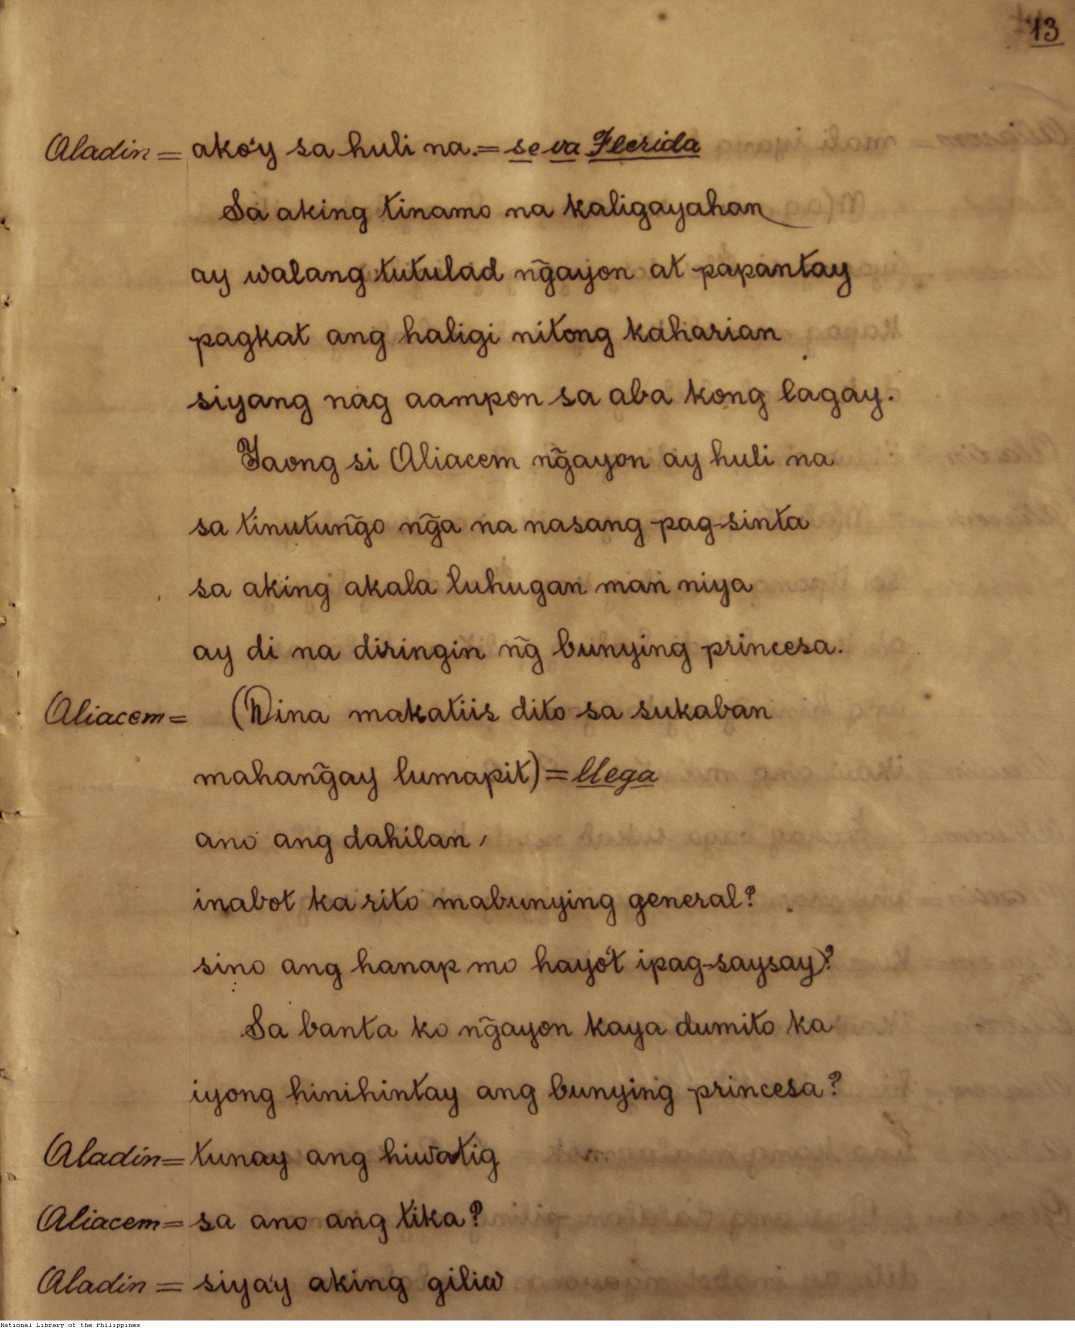 13
Aladin = ako'y sa huli na.= se va Flerida
Sa aking tinamo na kaligayahan
ay walang tutulad ng̃ayon at papantay
pagkat ang haligi nitong kaharian
siyang nag aampon sa aba kong lagay.
Yaong si Aliacem ng̃ayon ay huli na
sa tinutung̃o ng̃a na nasang pag-sinta
sa aking akala luhugan man niya
ay di na diringin ng̃ bunying princesa.
Aliacem = (Dina makatiis dito sa sukaban
mahang̃ay lumapit) = llega
ano ang dahilan,
inabot ka rito mabunying general?
sino ang hanap mo hayo't ipag-saysay?
Sa banta ko ng̃ayon kaya dumito ka
iyong hinihintay ang bunying princesa?
Aladin = tunay ang hiwatig
Aliacem = sa ano ang tika?
Aladin = siya'y aking giliw
National Library of the Philippines